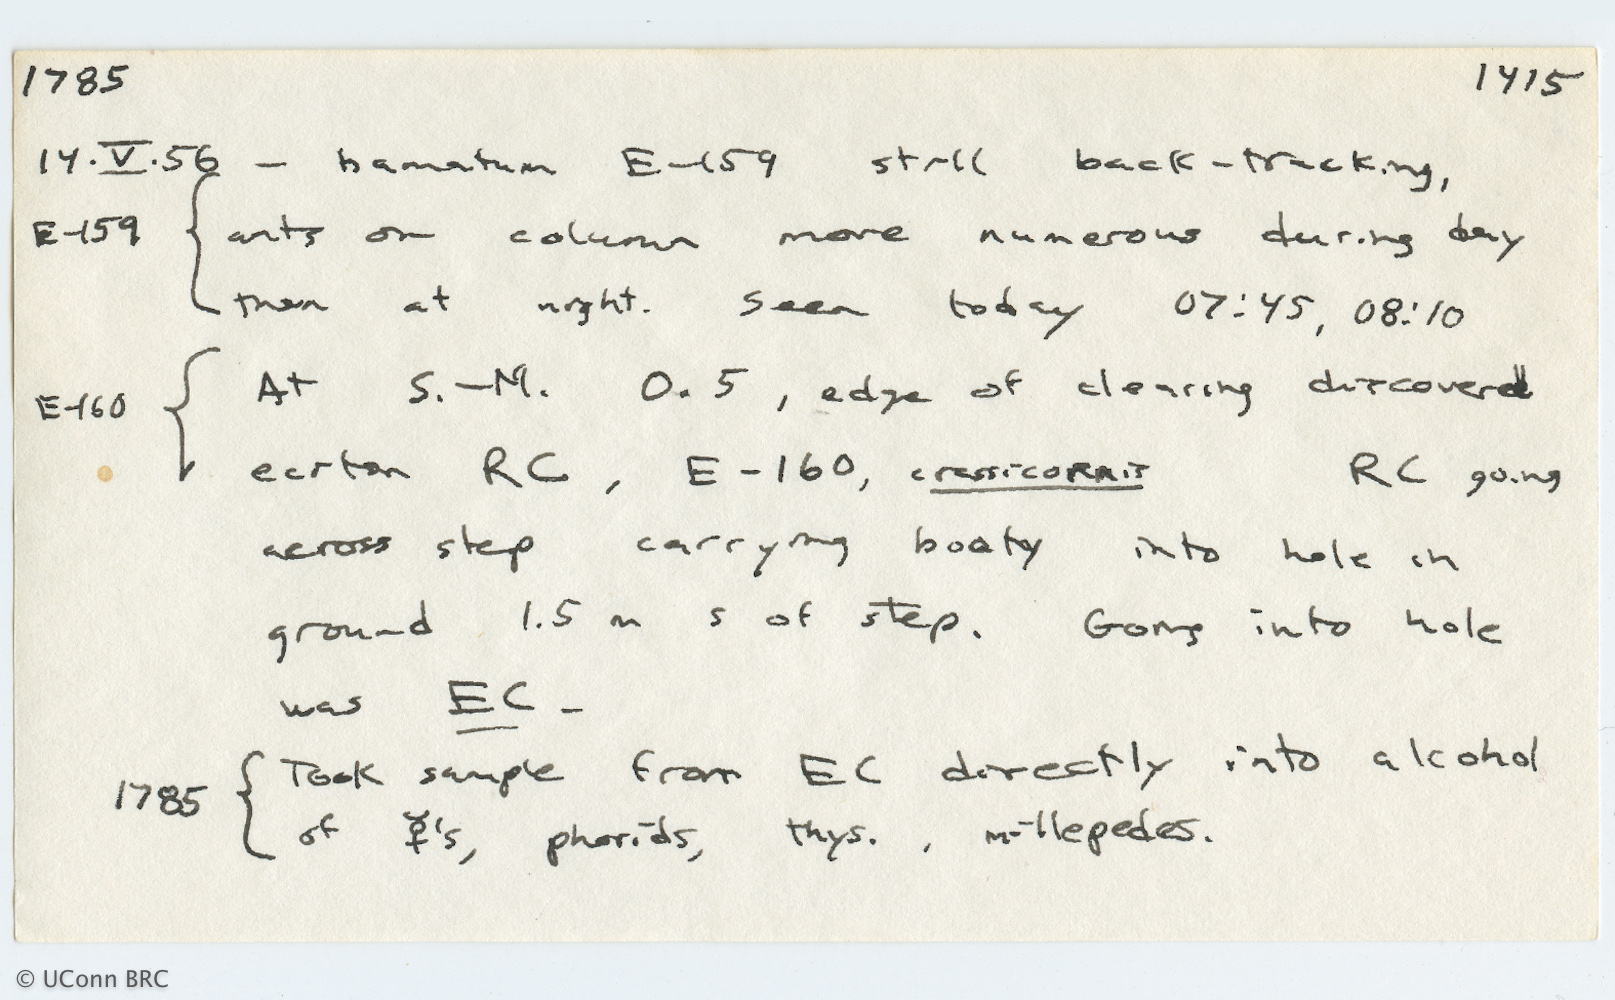 1785 1415
14.V.56 – hamatum E-159 still back-tracking,
E-159 { ants on column more numerous during day
than at night. Seen today 07:45, 08:10
E-160 { At S.-M. 0.5, edge of clearing discovered
eciton RC, E-160, crassicornis RC going
across step carrying booty into hole in
ground 1.5 m s of step. Going into hole
was EC –
1785 { Took sample from EC directly into alcohol
of ☿'s, phorids, thys., millepedes.
© UConn BRC